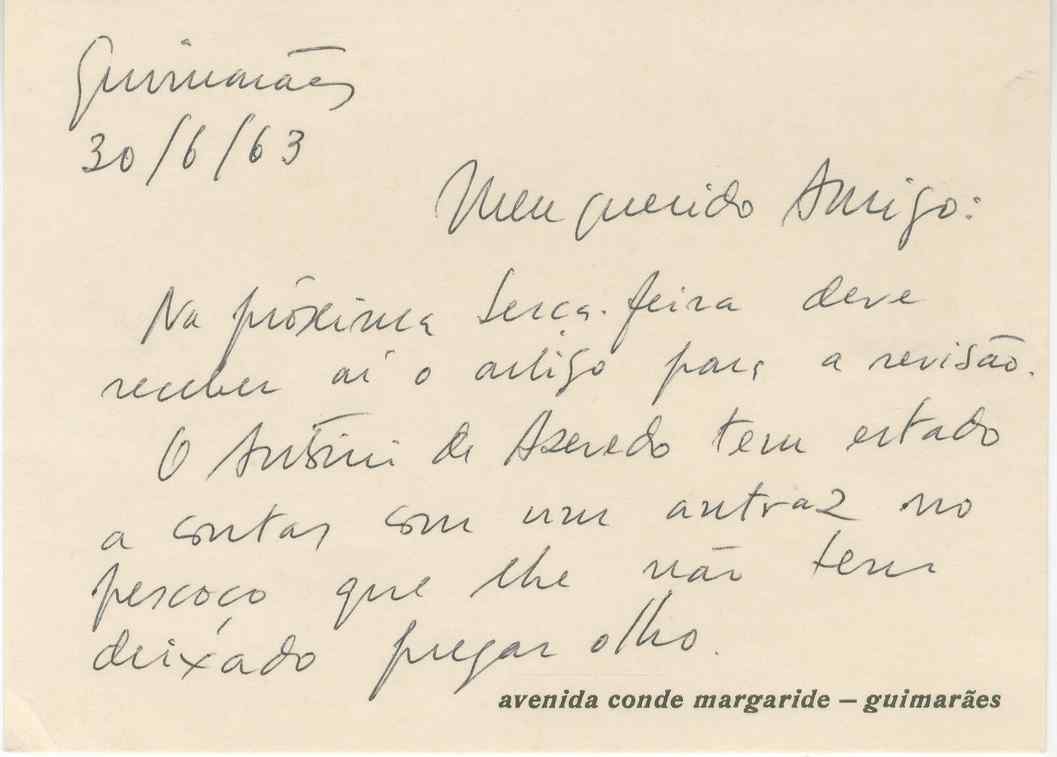 Guimarães
30/6/63
Meu querido Amigo:
Na próxima terça-feira deve
receber aí o artigo para a revisão.
O António de Azevedo tem estado
a contas com um antraz no
pescoço que lhe não tem
deixado pregar olho.
avenida conde margaride – guimarães